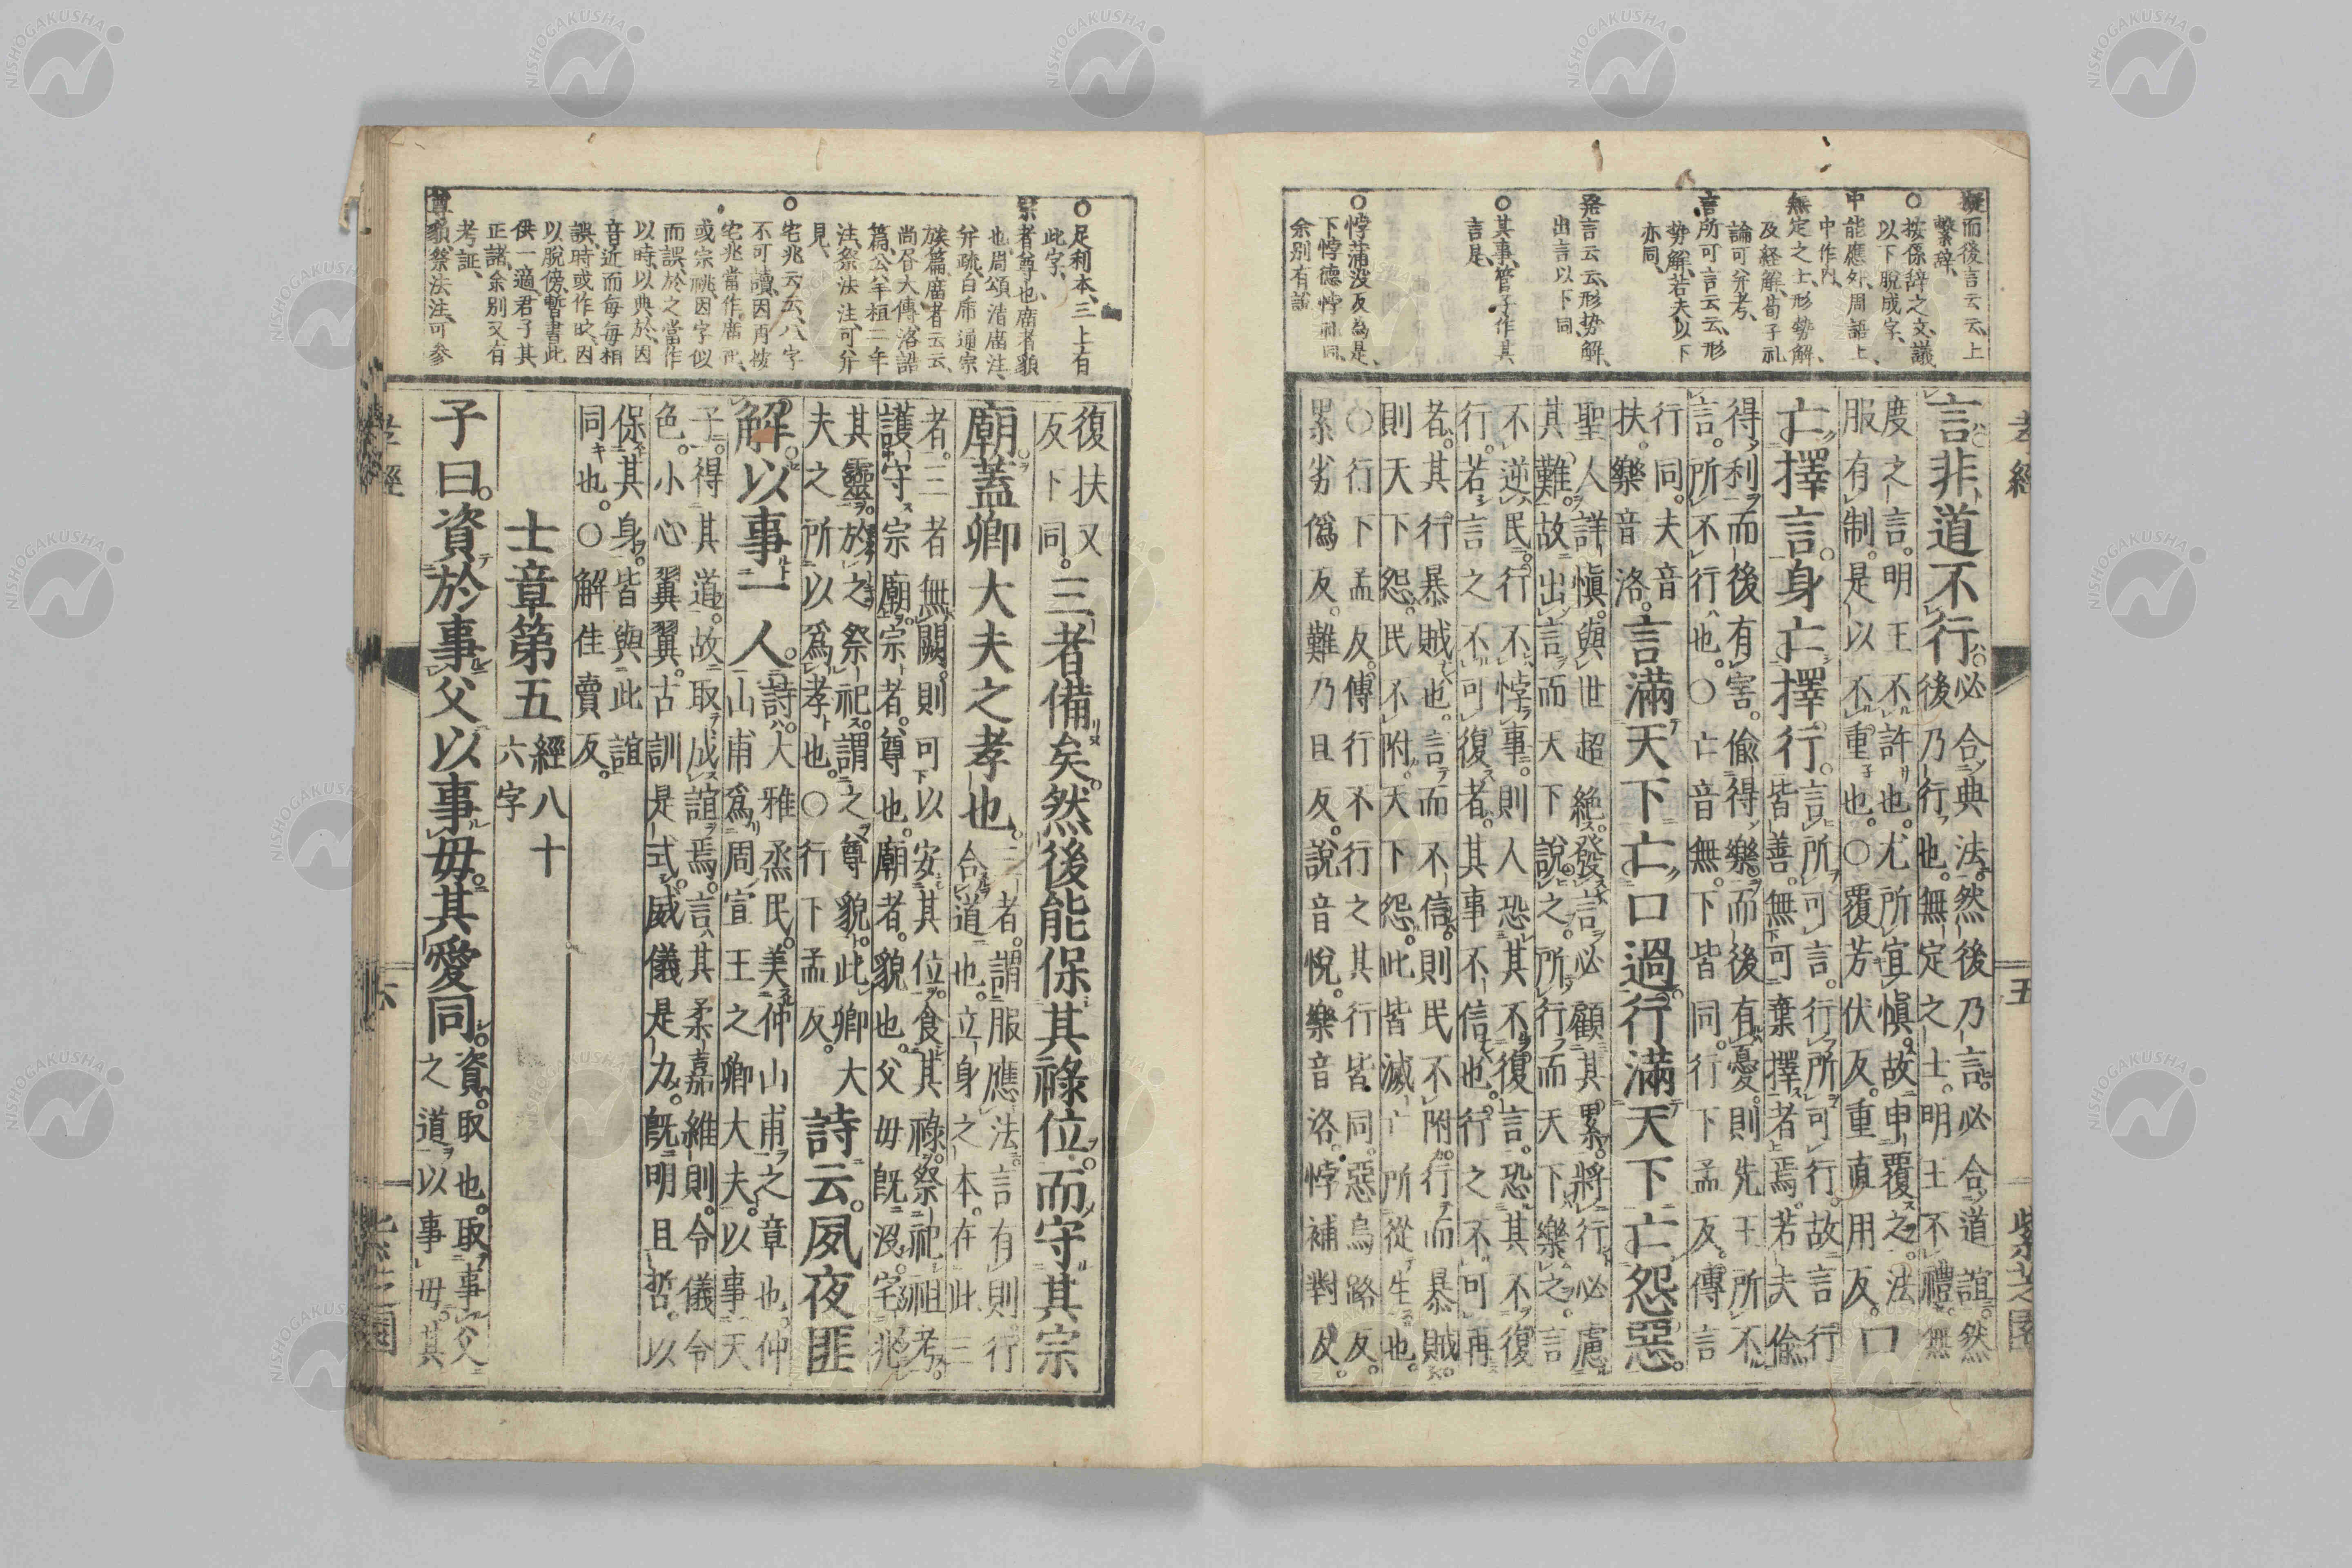 孝經 五 紫芝園
疑而後言云云、上
繫辭、
○按係辭之文、議
以下脱成字、
中能應外、周語上、
中作内、
無定之士、形勢解
及経解、荀子礼
論可并考、
言所可言云云、形
勢解、若夫以下
亦同、
発言云云、形勢解、
出言以下同、
○其事、管子作其
言是、
○悖蒲没反為是、
下悖德悖礼同、
余別有説
言非道不行。必合典法。然後乃言。必合道誼。然
後乃行也。無定之士。明王不禮。無
度之言。明王不許也。尤所宜慎。故申覆之。法
服有制。是以不重也。○覆芳伏反。重直用反。口
亡擇言。身亡擇行。言所可言。行所可行。故言行
皆善。無可棄擇者焉。若夫偷
得利而後有害。偷得樂而後有憂。則先王所不
言。所不行也。○亡音無。下皆同。行下孟反。傳言
行同。夫音
扶。樂音洛。言滿天下亡口過。行滿天下亡怨惡。
聖人詳慎。與世超絶。發言必顧其累。將行必慮
其難。故出言而天下說之。所行而天下樂之。言
不逆民。行不悖事。則人恐其不復言。恐其不復
行。若言之不可復者。其事不信也。行之不可再
者。其行暴賊也。言而不信。則民不附。行而暴賊。
則天下怨。民不附。天下怨。此皆滅亡所從生也。
○行下孟反。傳行不行之其行皆同。惡烏路反。
累劣偽反。難乃旦反。說音悅。樂音洛。悖補對反。
○足利本、三上有
此字、
宗者尊也、廟者貌
也、周頌清廟注、
并疏、白虎通宗
族篇、廟者云云、
尚書大傳洛誥
篇、公羊桓二年
注、祭法注、可并
見、
○宅兆云云、八字
不可讀、因再按
宅兆當作廟祧、
或宗祧、因字似
而誤、於之當作
以時、以典於、因
音近而毎毎相
誤、時或作旹、因
以脱傍、暫書此
供一適、君子其
正諸、余別又有
考証、
尊貌、祭法注、可參
復扶又
反下同。三者備矣。然後能保其祿位。而守其宗
廟。蓋卿大夫之孝也。三者。謂服應法。言有則。行
合道也。立身之本。在此三
者。三者無闕。則可以安其位。食其祿。祭祀祖考。
護守宗廟。宗者。尊也。廟者。貌也。父毋既沒。宅兆
其靈。於之祭祀。謂之尊貌。此卿大
夫之所以爲孝也。○行下孟反。詩云。夙夜匪
解。以事一人。詩。大雅烝民。美仲山甫之章也。仲
山甫爲周宣王之卿大夫。以事天
子。得其道。故取成誼焉。言其柔嘉維則。令儀令
色。小心翼翼。古訓是式。威儀是力。既明且哲。以
保其身。皆與此誼
同也。○解佳賣反。
士章第五 經八十
六字
子曰。資於事父以事毋。其愛同。資。取也。取事父
之道。以事毋。其
孝經 六 紫芝園